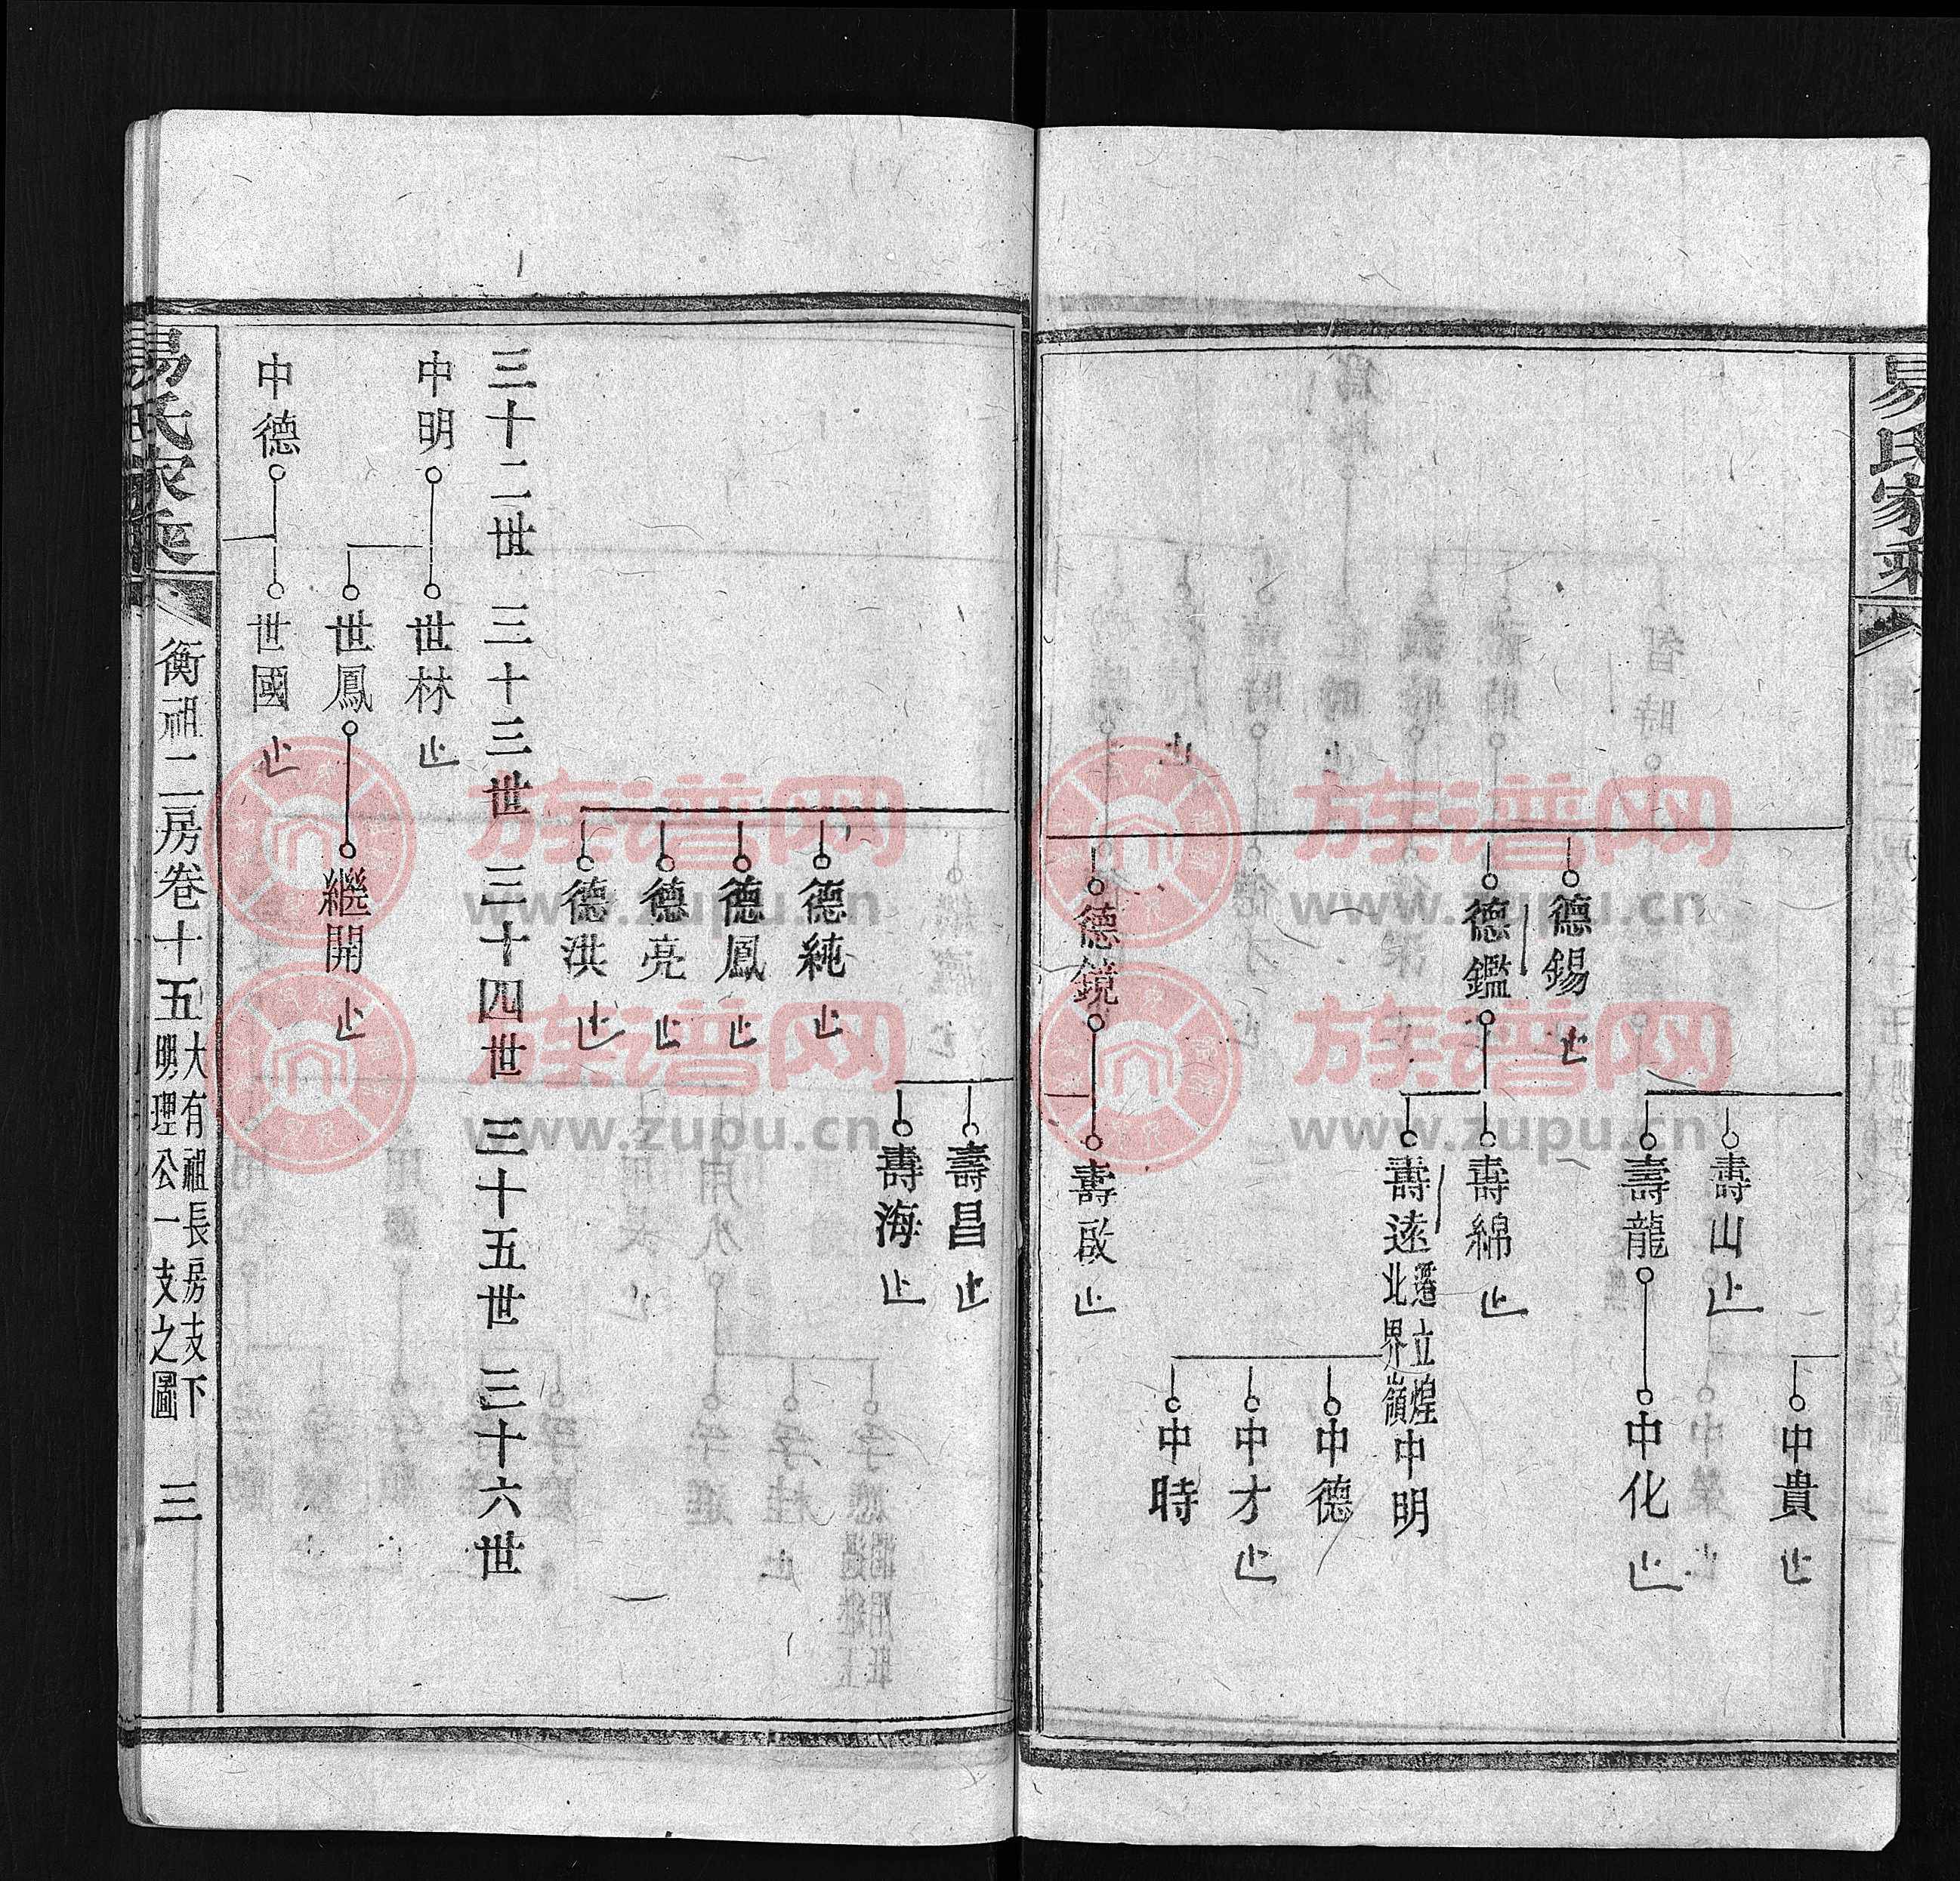 易氏家乘
中貴 止
壽山 止
壽龍
中化 止
德錫 止
德鑑
壽綿 止
壽遠
遷立煌
北界嶺
中明
中德
中才 止
中時
德鏡
壽啟 止
壽昌 止
壽海 止
德純 止
德鳳 止
德亮 止
德洪 止
三十二世 三十三世 三十四世 三十五世 三十六世
中明
世林 止
世鳳
繼開 止
中德
世國 止
易氏家乘
衡祖二房卷十五
大有祖長房支下
明理公一支之圖
三
族谱网
www.zupu.cn
族谱网
www.zupu.cn
族谱网
www.zupu.cn
族谱网
www.zupu.cn